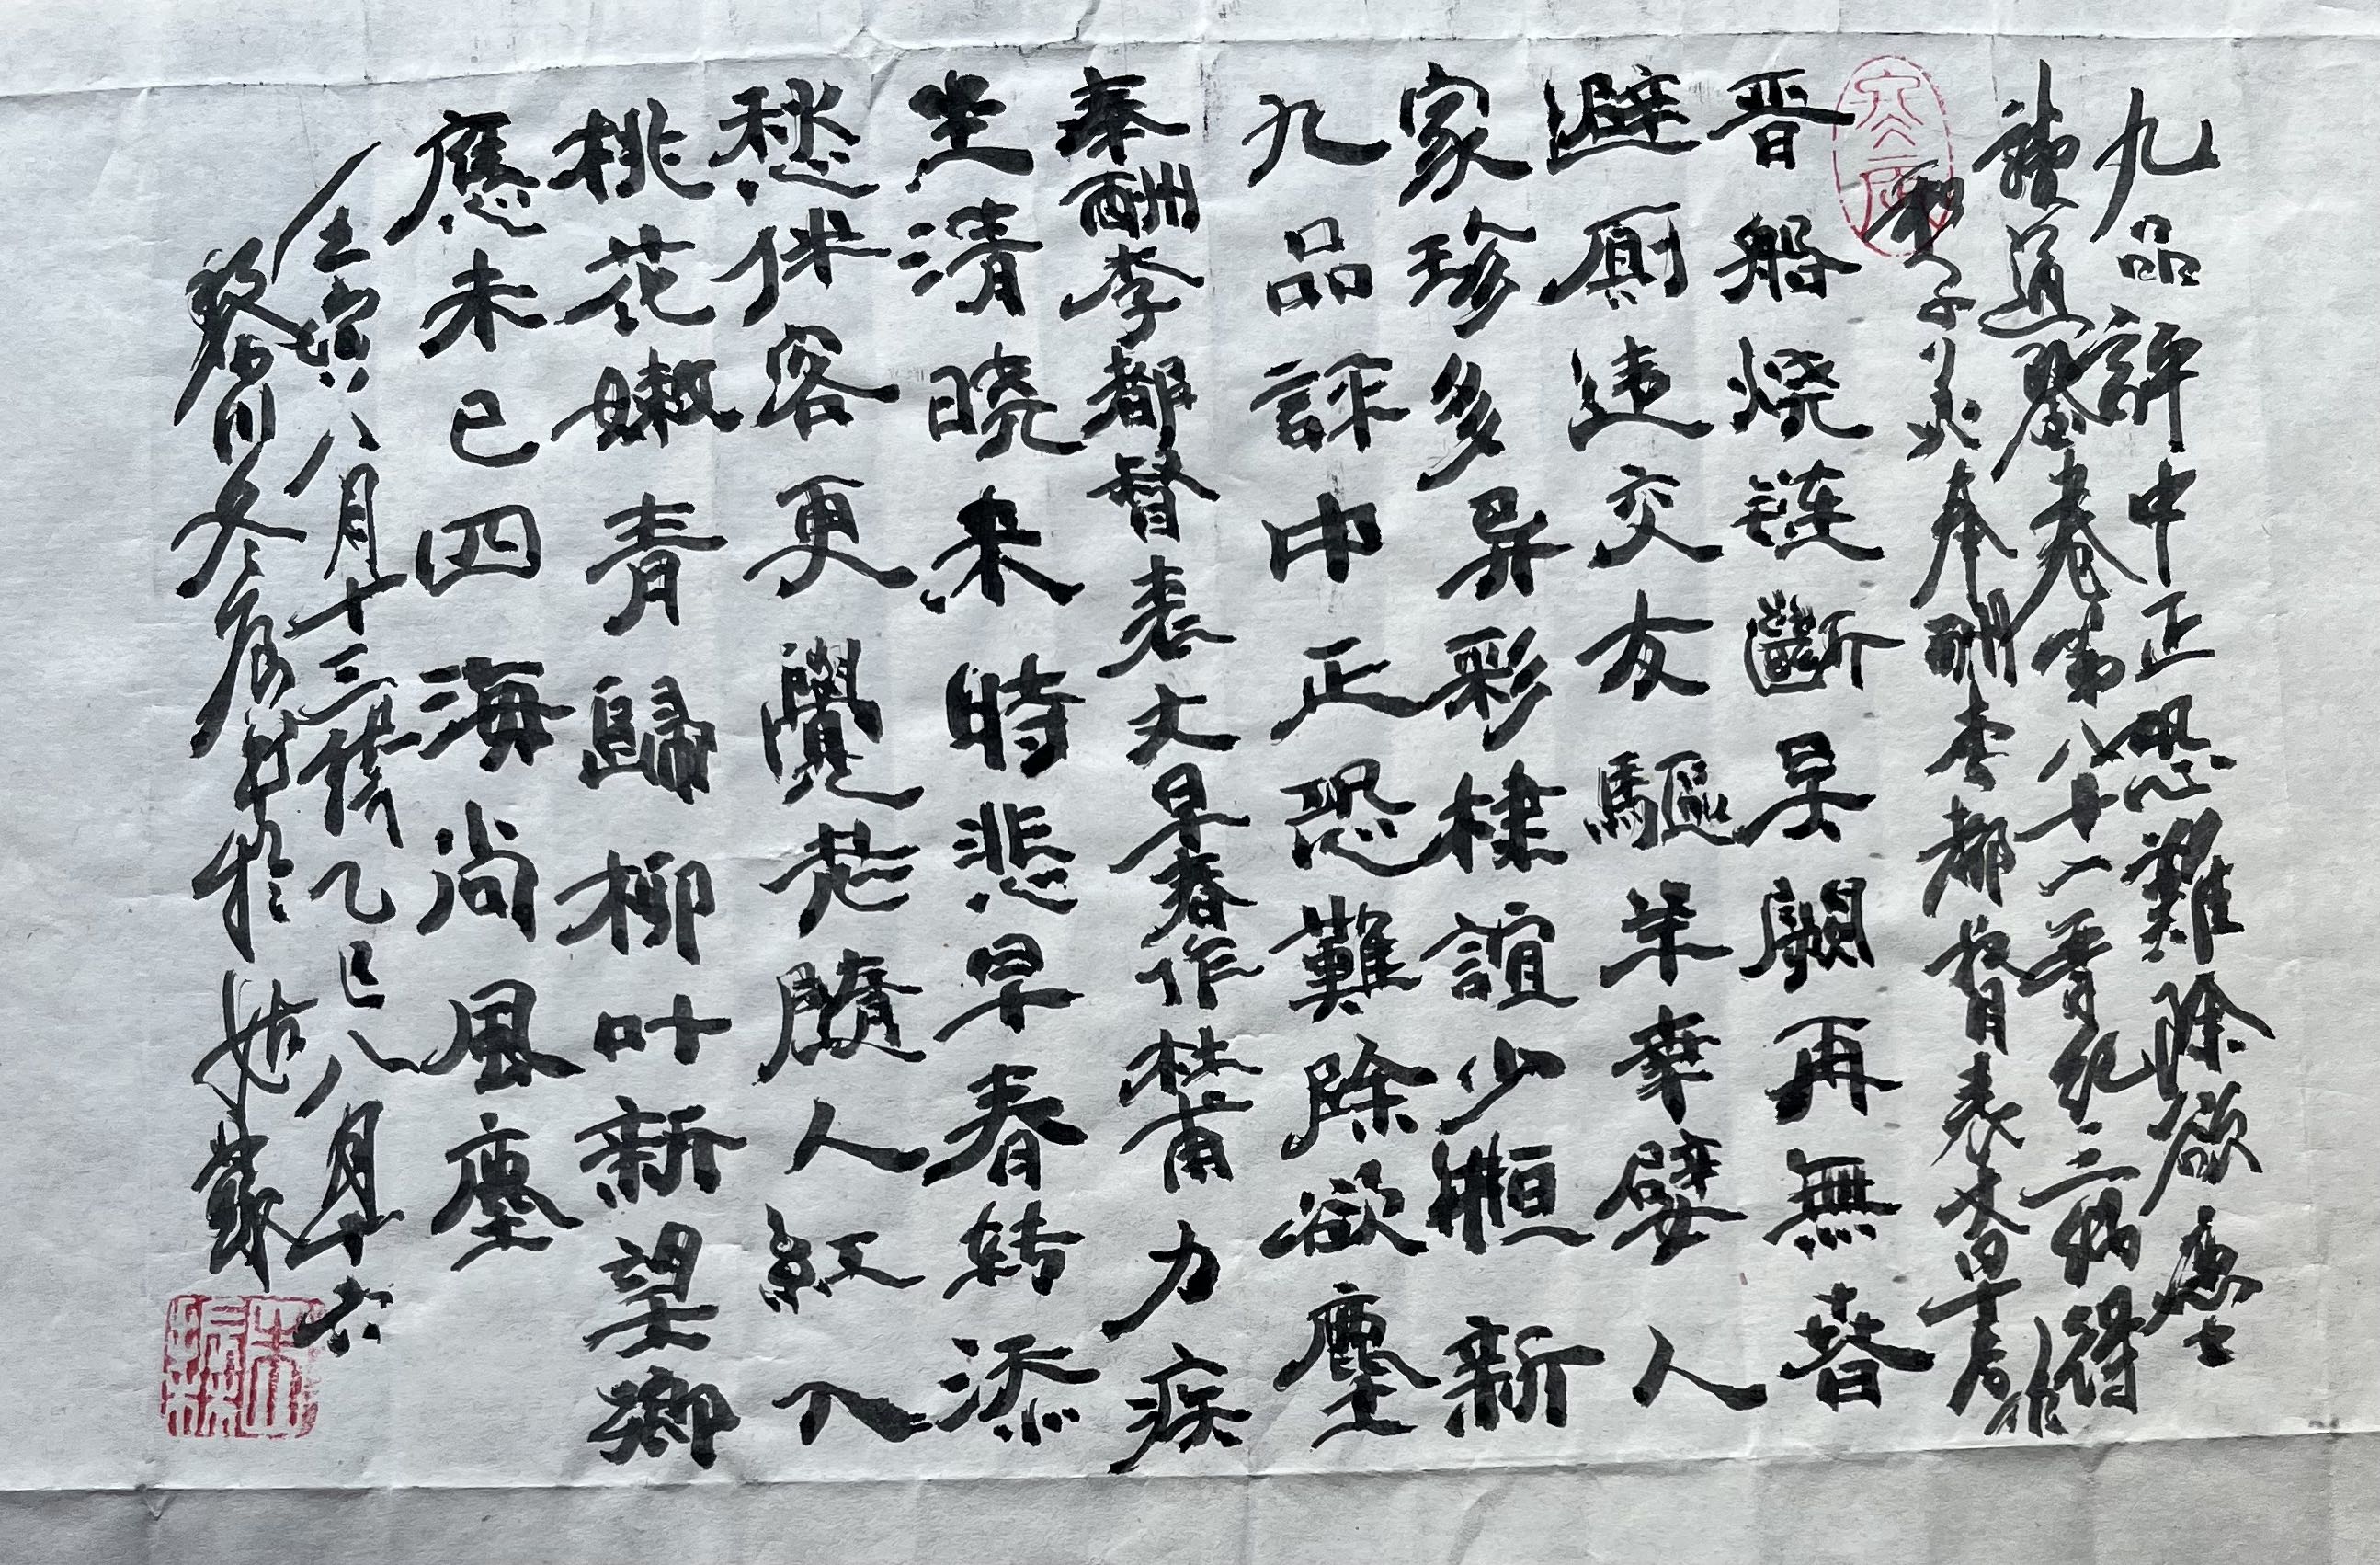 九品評中正恐難除欲塵
讀通鑒卷第八十一晉紀三偶得
和子美奉酬李都督表丈早春作
晉船燒鏈斷吴闕再無春
避厠违交友驅羊幸嬖人
家珍多异彩棣誼少恒新
九品評中正恐難除欲塵
奉酬李都督表丈早春作杜甫力疾
坐清曉来時悲早春转添
愁伴客更覺老隨人紅入
桃花嫩青歸柳叶新望鄉
應未已四海尚風塵
壬寅八月十三偶乙巳八月十六
黎川冬唐書於姑蘇